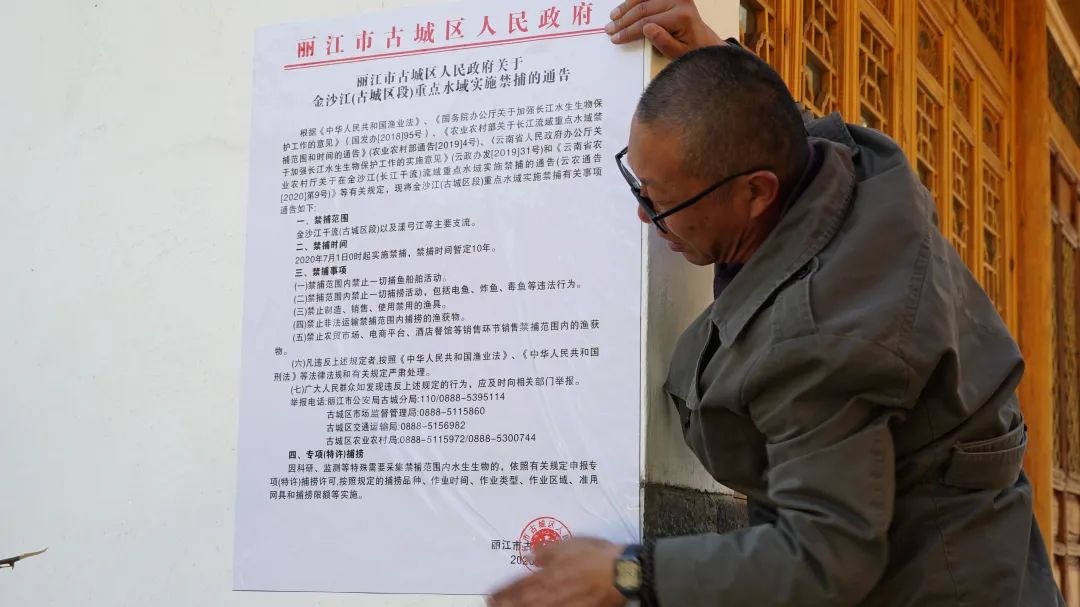 丽江市古城区人民政府
丽江市古城区人民政府关于
金沙江(古城区段)重点水域实施禁捕的通告
根据《中华人民共和国渔业法》、《国务院办公厅关于加强长江水生生物保
护工作的意见》(国发办[2018]95号)、《农业农村部关于长江流域重点水域禁
捕范围和时间的通告》(农业农村部通告[2019]4号)、《云南省人民政府办公厅关
于加强长江水生生物保护工作的实施意见》(云政办发[2019]31号)和《云南省农
业农村厅关于在金沙江(长江干流)流域重点水域实施禁捕的通告(云农通告
[2020]第9号)》等有关规定，现将金沙江(古城区段)重点水域实施禁捕有关事项
通告如下:
一、禁捕范围
金沙江干流(古城区段)以及漾弓江等主要支流。
二、禁捕时间
2020年7月1日0时起实施禁捕，禁捕时间暂定10年。
三、禁捕事项
(一)禁捕范围内禁止一切捕鱼船舶活动。
(二)禁捕范围内禁止一切捕捞活动，包括电鱼、炸鱼、毒鱼等违法行为。
(三)禁止制造、销售、使用禁用的渔具。
(四)禁止非法运输禁捕范围内捕捞的渔获物。
(五)禁止农贸市场、电商平台、酒店餐馆等销售环节销售禁捕范围内的渔获
物。
(六)凡违反上述规定者,按照《中华人民共和国渔业法》、《中华人民共和国
刑法》等法律法规和有关规定严肃处理。
(七)广大人民群众如发现违反上述规定的行为，应及时向相关部门举报。
举报电话:丽江市公安局古城分局:110/0888-5395114
古城区市场监督管理局:0888-5115860
古城区交通运输局:0888-5156982
古城区农业农村局:0888-5115972/0888-5300744
四、专项(特许)捕捞
因科研、监测等特殊需要采集禁捕范围内水生生物的，依照有关规定申报专
项(特许)捕捞许可,按照规定的捕捞品种、作业时间、作业类型、作业区域、准用
网具和捕捞限额等实施。
丽江市古
202